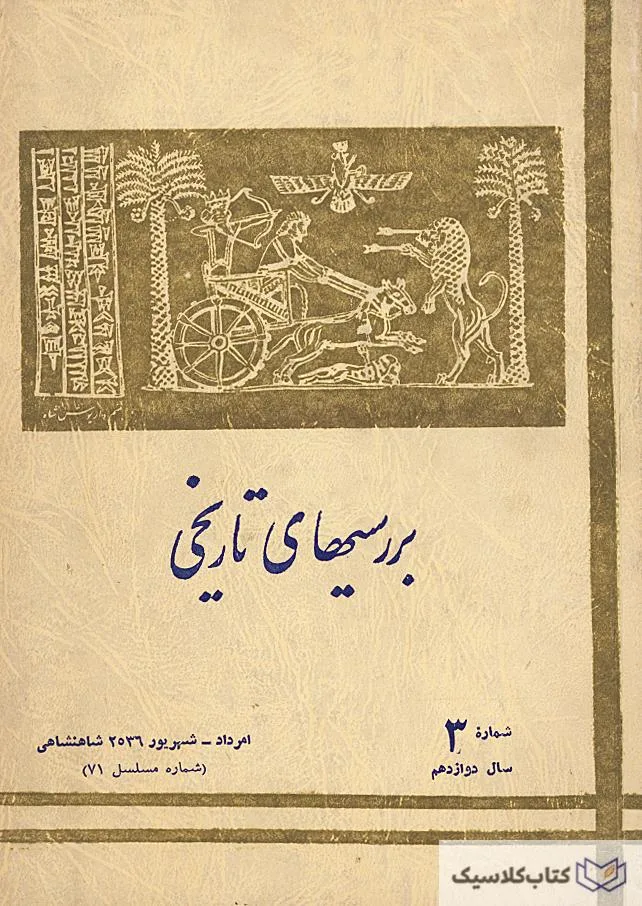 نقش داریوش شاه
بررسیهای تاریخی
شمارهٔ ۳
سال دوازدهم
امرداد ـ شهریور ۲۵۳۶ شاهنشاهی
(شماره مسلسل ۷۱)
کتاب کلاسیک